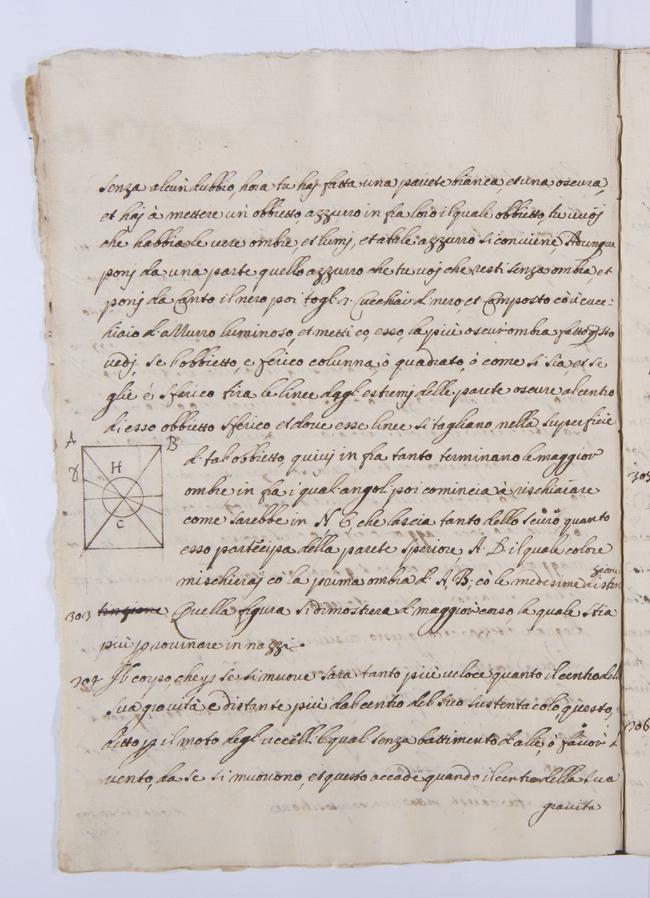 senza alcun dubbio, hora tu haj fatta una parete bianca, et una oscura,
et haj à mettere un obbietto, azzurro in fra loro il quale obbietto, tu uuoj
che habbia le vere ombre, et lumj, et a tale azzurro si conviene, Adunque
ponj da una parte quello azzurro che tu uoj che resti senza ombra, et
ponj da Canto il nero poi togli 3 Cucchiai di nero, et Composto cō ū cuc=
chiaio di azzurro luminoso, et metti cō, esso, la più oscur ombra fatto qsto
vedj, se l'obbietto, è sferico colunna, ò quadrato, ò come si sia, et se
glie è sferico tira le linee dagli estremj delle parete oscure al centro
di esso obbietto sferico et dove esse linee si tagliano nella superficie
A B
di tal obbietto, quivj in fra tanto terminano le maggior
H
ombre in fra i quali angoli, poi comincia à rischiarare
come sarebbe in N C, che lascia tanto dello scuro quanto
C
esso participa della parete superiore A. B il quale colore
mischieraj cō la prima ombra di A, B, cō le medesime distin
303 Quella figura si dimostera di maggior corso, la quale stia
più p rovinare innazzi
304 Il corpo, che p se si muove sara tanto più veloce quanto il centro della
sua gravita è distante più dal centro del suo sustentacolo, questo,
è detto p il moto degli uccelli, li quali senza battimento d'alie, ò favor di
vento, da se si muovono, et questo accade quando il centro della sua
gravita